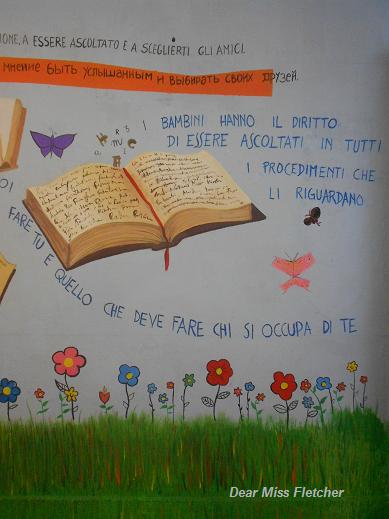 IONE, A ESSERE ASCOLTATO E A SCEGLIERTI GLI AMICI.
МНЕНИЕ БЫТЬ УСЛЫШАННЫМ И ВЫБИРАТЬ СВОИХ ДРУЗЕЙ.
I BAMBINI HANNO IL DIRITTO
DI ESSERE ASCOLTATI IN TUTTI
I PROCEDIMENTI CHE
LI RIGUARDANO
OI
FARE TU E QUELLO CHE DEVE FARE CHI SI OCCUPA DI TE
Dear Miss Fletcher